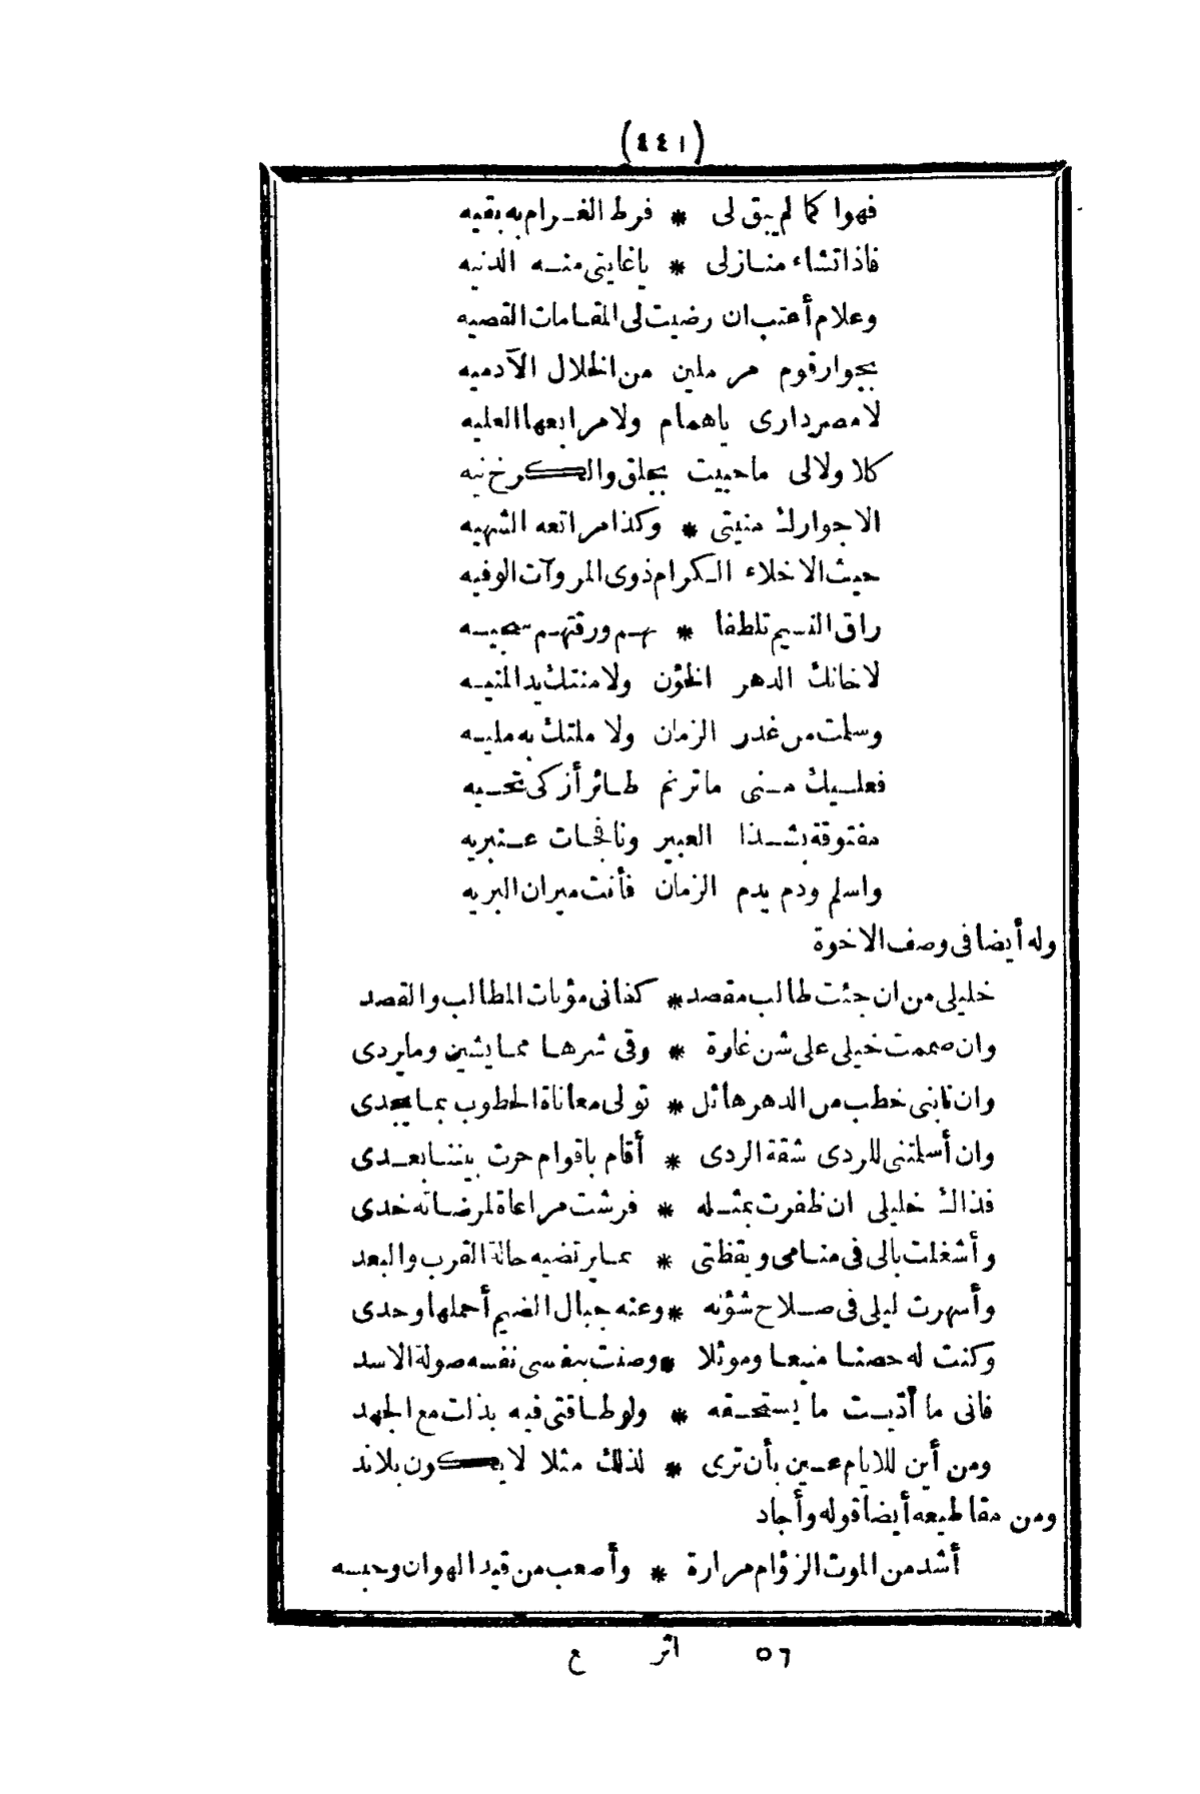 (٤٤١)
فهوا كما لم يبق لى * فرط الغرام به بقيه
فاذا تشاء منازلى * ياغايتى منه الدنيه
وعلام أعتب ان رضيت لى المقامات القصيه
بجوار قوم مرملين من الخلال الآدميه
لا مصر دارى ياهمام ولا مرابعها العليه
كلا ولا لى ما حييت بجلق والكرخ نيه
الا جوارك منيتى * وكذا مراتعه الشهيه
حيث الاخلاء الكرام ذوى المروآت الوفيه
راق النسيم تلطفا * بهم ورقتهم سجيه
لا خانك الدهر الخؤن ولا منتك يد المنيه
وسلمت من غدر الزمان ولا ملتك به مليه
فعليك منى ما ترنم طائر أزكى تحيه
مفتوقة بشذا العبير ونافحات عنبريه
واسلم ودم يدم الزمان فأنت ميران البريه
وله أيضا فى وصف الاخوة
خليلى من ان جئت طالب مقصد * كفانى مؤنات المطالب والقصد
وان صممت خيلى على شن غارة * وقى شرها مما يشين وما يردى
وان نابنى خطب من الدهر هائل * تولى معاناة الخطوب بما يجدى
وان أسلمتنى للردى شقة الردى * أقام باقوام حرت بيننا بعدى
فذاك خليلى ان ظفرت بمثله * فرشت مراعاة لمرضاته خدى
وأشغلت بالى فى منامى ويقظتى * بما يرتضيه حالة القرب والبعد
وأسهرت ليلى فى صلاح شؤنه * وعنه جبال الضيم أحملها وحدى
وكنت له حصنا منيعا وموئلا * وصنت بنفسى نفسه صولة الاسد
فانى ما أدّيت ما يستحقه * ولو طاقتى فيه بذلت مع الجهد
ومن أين للايام عين بأن ترى * لذلك مثلا لا يكون بلا ند
ومن مقاطيعه أيضا قوله وأجاد
أشد من الموت الزؤام مرارة * وأصعب من قيد الهوان وحبسه
٥٦ اثر ع